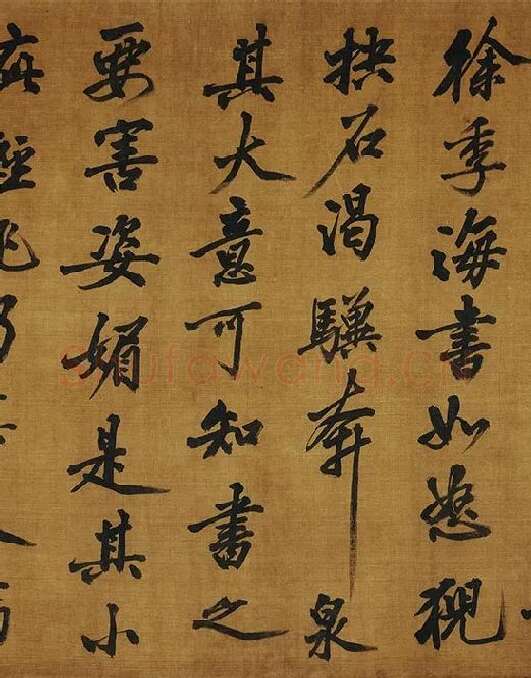 徐季海書如怒猊
抉石渴驥奔泉
其大意可知書之
要害姿媚是其小